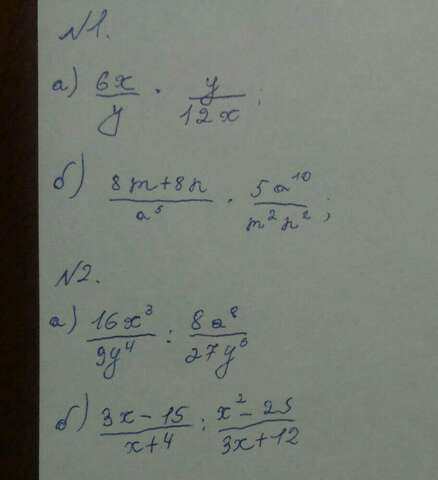 №1.
а) 6x/y · y/12x;
б) (8m+8n)/a⁵ · 5a¹⁰/(m²n²);
№2.
а) 16x³/9y⁴ : 8a⁸/27y⁶
б) (3x-15)/(x+4) : (x²-25)/(3x+12)